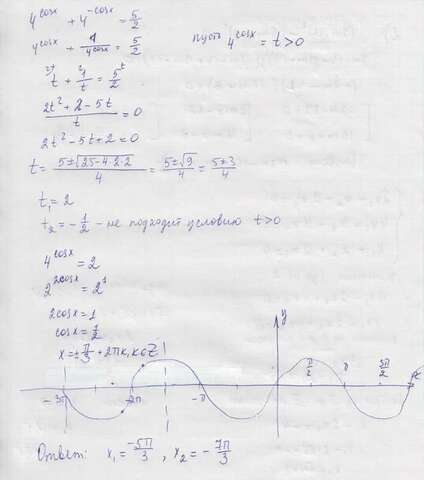 4^cosx + 4^-cosx = 5/2
4^cosx + 1/4^cosx = 5/2 пусть 4^cosx = t > 0
t + 1/t = 5/2
(2t² + 2 - 5t)/t = 0
2t² - 5t + 2 = 0
t = (5 ± √(25 - 4·2·2))/4 = (5 ± √9)/4 = (5 ± 3)/4
t₁ = 2
t₂ = -1/2 - не подходит условию t > 0
4^cosx = 2
2^2cosx = 2^1
2cosx = 1
cosx = 1/2
x = ± π/3 + 2πk, k∈Z
y
π/2 π 3π/2 x
-3π -2π -π
Ответ: x₁ = -5π/3, x₂ = -7π/3